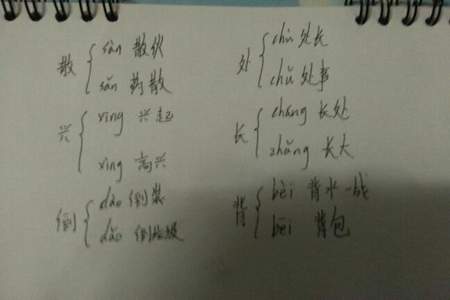 散
sàn 散伙
sǎn 药散
兴
xīng 兴起
xìng 高兴
倒
dào 倒装
dǎo 倒垃圾
处
chù 处长
chǔ 处事
长
cháng 长处
zhǎng 长大
背
bèi 背水一战
bēi 背包